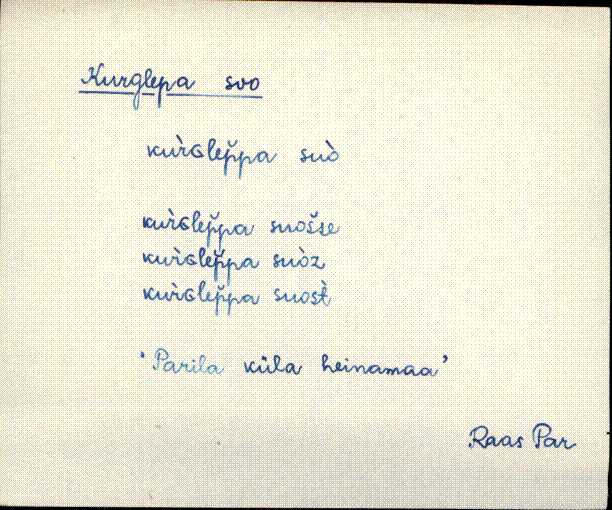 Kurglepa soo
kur̀ɢlep̆pa suò
kur̀ɢlep̆pa suos̆se
kur̀ɢlep̆pa suòz
kur̀ɢlep̆pa suost̀
'Parila küla heinamaa'
Raas Par